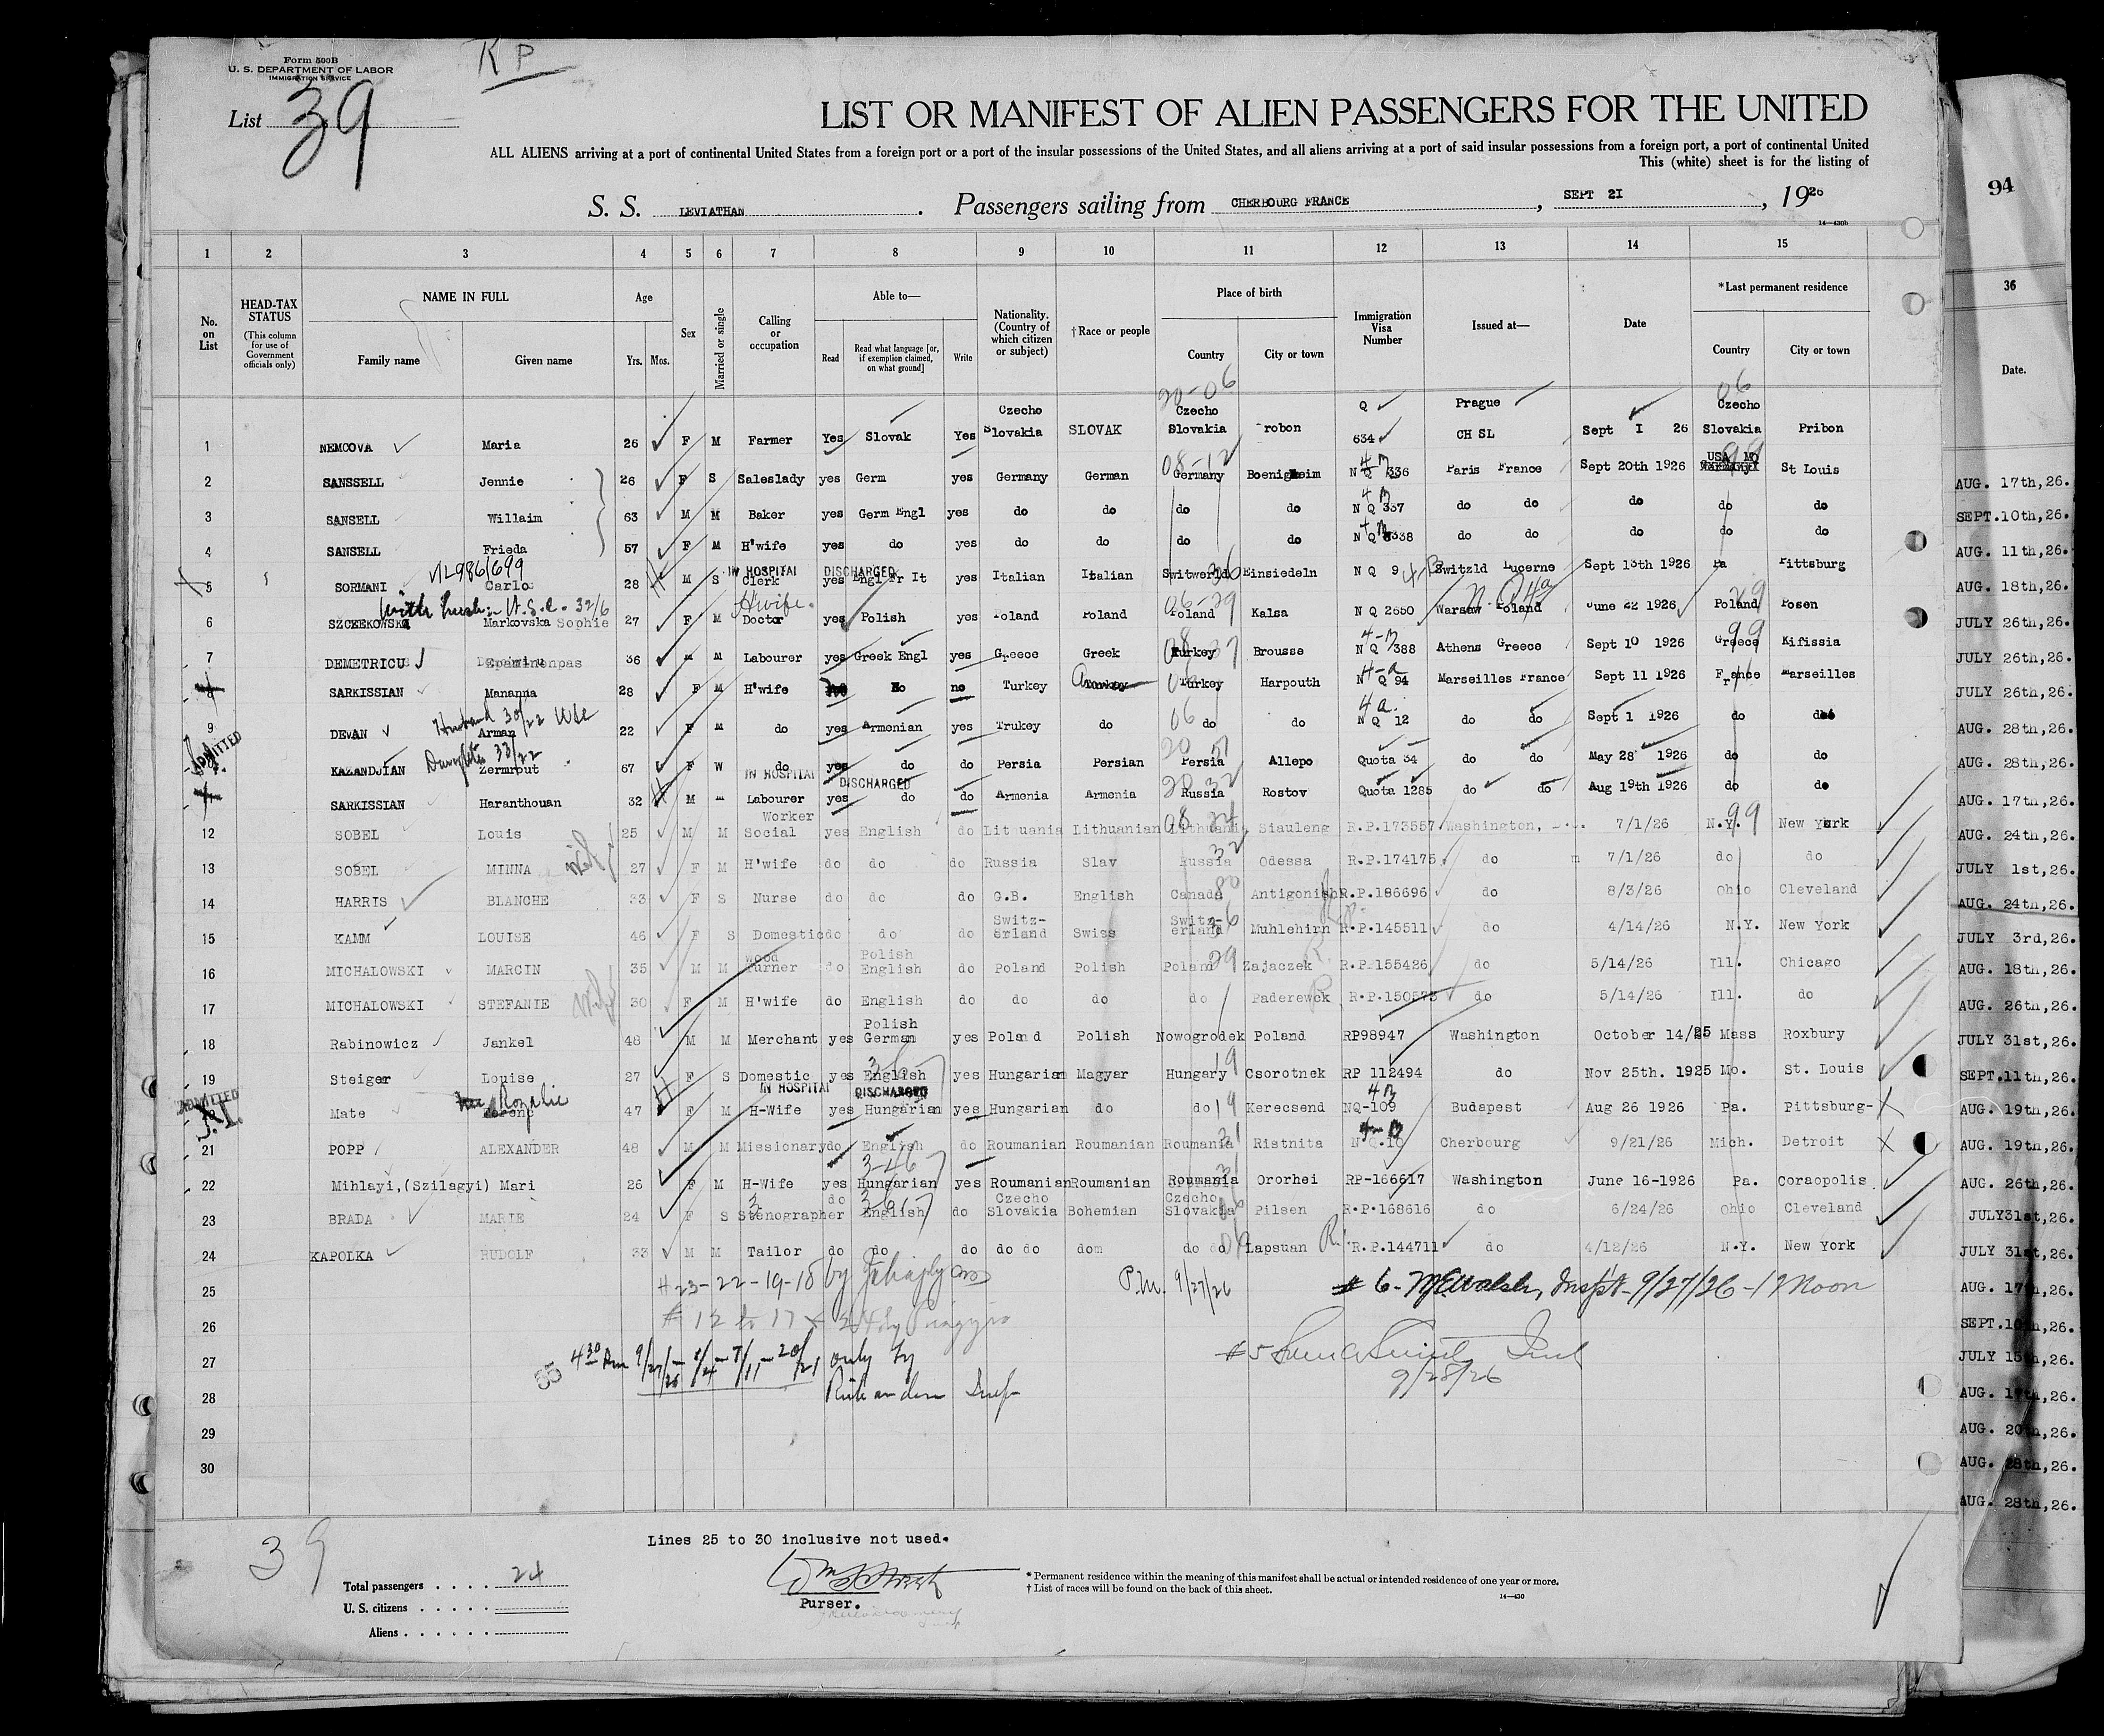 Form 500B
U. S. DEPARTMENT OF LABOR
IMMIGRATION SERVICE
K P
List 39
LIST OR MANIFEST OF ALIEN PASSENGERS FOR THE UNITED
ALL ALIENS arriving at a port of continental United States from a foreign port or a port of the insular possessions of the United States, and all aliens arriving at a port of said insular possessions from a foreign port, a port of continental United
This (white) sheet is for the listing of
S. S. LEVIATHAN . Passengers sailing from CHERBOURG FRANCE , SEPT 21 , 1926
14—430b
1 2 3 4 5 6 7 8 9 10 11 12 13 14 15
No. on List
HEAD-TAX STATUS (This column for use of Government officials only)
NAME IN FULL
Family name Given name
Age
Yrs. Mos.
Sex
Married or single
Calling or occupation
Able to—
Read Read what language [or, if exemption claimed, on what ground] Write
Nationality. (Country of which citizen or subject)
†Race or people
Place of birth
Country City or town
Immigration Visa Number
Issued at—
Date
*Last permanent residence
Country City or town
20-06 06
Czecho Czecho Q Prague Czecho
1 NEMCOVA Maria 26 F M Farmer Yes Slovak Yes Slovakia SLOVAK Slovakia robon 634 CH SL Sept I 26 Slovakia Pribon
08-12 USA MO 99
2 SANSSELL Jennie 26 F S Saleslady yes Germ yes Germany German Germany Boenigheim N Q 336 Paris France Sept 20th 1926 St Louis
3 SANSELL Willaim 63 M M Baker yes Germ Engl yes do do do do N Q 337 do do do do do
4 SANSELL Frieda 57 F M H'wife yes do yes do do do do N Q 338 do do do do do
IN HOSPITAL DISCHARGED
5 SORMANI Carlo 28 M S Clerk yes Engl Fr It yes Italian Italian Switwerld Einsiedeln N Q 9 Switzld Lucerne Sept 13th 1926 Pa Pittsburg
H'wife. 06-29 29
6 SZCZEKOWSKA Markovska Sophie 27 F M Doctor yes Polish yes Poland Poland Poland Kalsa N Q 2550 Warsaw Poland June 22 1926 Poland Posen
7 DEMETRICUS Epaminenpas 36 M M Labourer yes Greek Engl yes Greece Greek Turkey Brousse N Q 388 Athens Greece Sept 10 1926 Greece Kifissia
SARKISSIAN Mananna 28 F M H'wife No no Turkey Turkey Harpouth N Q 94 Marseilles France Sept 11 1926 France Marseilles
Husband 30/22
9 DEVAN Arman 22 F M do yes Armenian yes Trukey do do do N Q 12 do do Sept 1 1926 do do
ADMITTED Daughter 33/22
KAZANDJIAN Zermrout 67 F W do yes do do Persia Persian Persia Allepo Quota 34 do do May 28 1926 do do
IN HOSPITAL DISCHARGED
SARKISSIAN Haranthouan 32 M M Labourer yes do do Armenia Armenia Russia Rostov Quota 1285 do do Aug 19th 1926 do do
Worker
12 SOBEL Louis 25 M M Social yes English do Lituania Lithuanian Lithuania Siauleng R.P.173557 Washington, 7/1/26 N.Y. New York
13 SOBEL MINNA wife 27 F M H'wife do do do Russia Slav Russia Odessa R.P.174175 do 7/1/26 do do
14 HARRIS BLANCHE 33 F S Nurse do do do G.B. English Canada Antigonish R.P.186696 do 8/3/26 Ohio Cleveland
Switz- Switz-
15 KAMM LOUISE 46 F S Domestic do do do erland Swiss erland Muhlehirn R.P.145511 do 4/14/26 N.Y. New York
wood Polish
16 MICHALOWSKI MARCIN 35 M M Turner do English do Poland Polish Poland Zajaczek R.P.155426 do 5/14/26 Ill. Chicago
17 MICHALOWSKI STEFANIE wife 30 F M H'wife do English do do do do Paderewck R.P.150573 do 5/14/26 Ill. do
Polish
18 Rabinowicz Jankel 48 M M Merchant yes German yes Poland Polish Nowogrodek Poland RP98947 Washington October 14/25 Mass Roxbury
19 Steiger Louise 27 F S Domestic yes English yes Hungarian Magyar Hungary Csorotnek RP 112494 do Nov 25th. 1925 Mo. St. Louis
ADMITTED IN HOSPITAL DISCHARGED
Mate Rozalie 47 F M H-Wife yes Hungarian yes Hungarian do do Kerecsend NQ-109 Budapest Aug 26 1926 Pa. Pittsburg-
21 POPP ALEXANDER 48 M M Missionary do English do Roumanian Roumanian Roumania Ristnita N.Q.10 Cherbourg 9/21/26 Mich. Detroit
22 Mihlayi,(Szilagyi) Mari 26 F M H-Wife yes Hungarian yes Roumanian Roumanian Roumania Ororhei RP-166617 Washington June 16-1926 Pa. Coraopolis
Czecho Czecho
23 BRADA MARIE 24 F S Stenographer do English do Slovakia Bohemian Slovakia Pilsen R.P.168616 do 6/24/26 Ohio Cleveland
24 KAPOLKA RUDOLF 33 M M Tailor do do do do do dom do do Lapsuan R.P.144711 do 4/12/26 N.Y. New York
25 #23-22-19-18 by P.M. 9/27/26 # 6- Inspt-9/27/26-12 Noon
26 # 12 to 17 & 24 by
27 only by #5
28 9/28/26
29
30
Lines 25 to 30 inclusive not used.
39
Total passengers . . . . 24
U. S. citizens . . . . .
Aliens . . . . . .
Purser.
* Permanent residence within the meaning of this manifest shall be actual or intended residence of one year or more.
† List of races will be found on the back of this sheet.
14—430
94
36
Date.
AUG. 17th,26.
SEPT.10th,26.
AUG. 11th,26.
AUG. 18th,26.
JULY 26th,26.
JULY 26th,26.
JULY 26th,26.
AUG. 28th,26.
AUG. 28th,26.
AUG. 17th,26.
AUG. 24th,26.
JULY 1st,26.
AUG. 24th,26.
JULY 3rd,26.
AUG. 18th,26.
AUG. 26th,26.
JULY 31st,26.
SEPT.11th,26.
AUG. 19th,26.
AUG. 19th,26.
AUG. 26th,26.
JULY31st,26.
JULY 31st,26.
AUG. 17th,26.
SEPT. 10th,26.
JULY 15th,26.
AUG. 17th,26.
AUG. 20th,26.
AUG. 28th,26.
AUG. 28th,26.